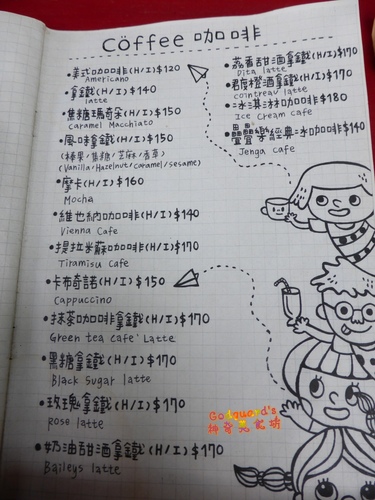 Coffee 咖啡
美式咖啡(H/I)$120
Americano
拿鐵(H/I)$140
latte
焦糖瑪奇朵(H/I)$150
Caramel Macchiato
風味拿鐵(H/I)$150
(榛果/焦糖/芝麻/香草)
(Vanilla/Hazelnut/caramel/sesame)
摩卡(H/I)$160
Mocha
維也納咖啡(H/I)$140
Vienna Cafe
提拉米蘇咖啡(H/I)$170
Tiramisu Cafe
卡布奇諾(H/I)$150
Cappuccino
抹茶咖啡拿鐵(H/I)$170
Green tea cafe' Latte
黑糖拿鐵(H/I)$170
Black Sugar latte
玫瑰拿鐵(H/I)$170
Rose latte
奶油甜酒拿鐵(H/I)$170
Baileys latte
荔香甜酒拿鐵(H/I)$170
Dita latte
君度橙酒拿鐵(H/I)$170
cointreau latte
冰淇淋咖啡(H/I)$180
Ice Cream cafe
疊疊樂經典冰咖啡$140
Jenga cafe